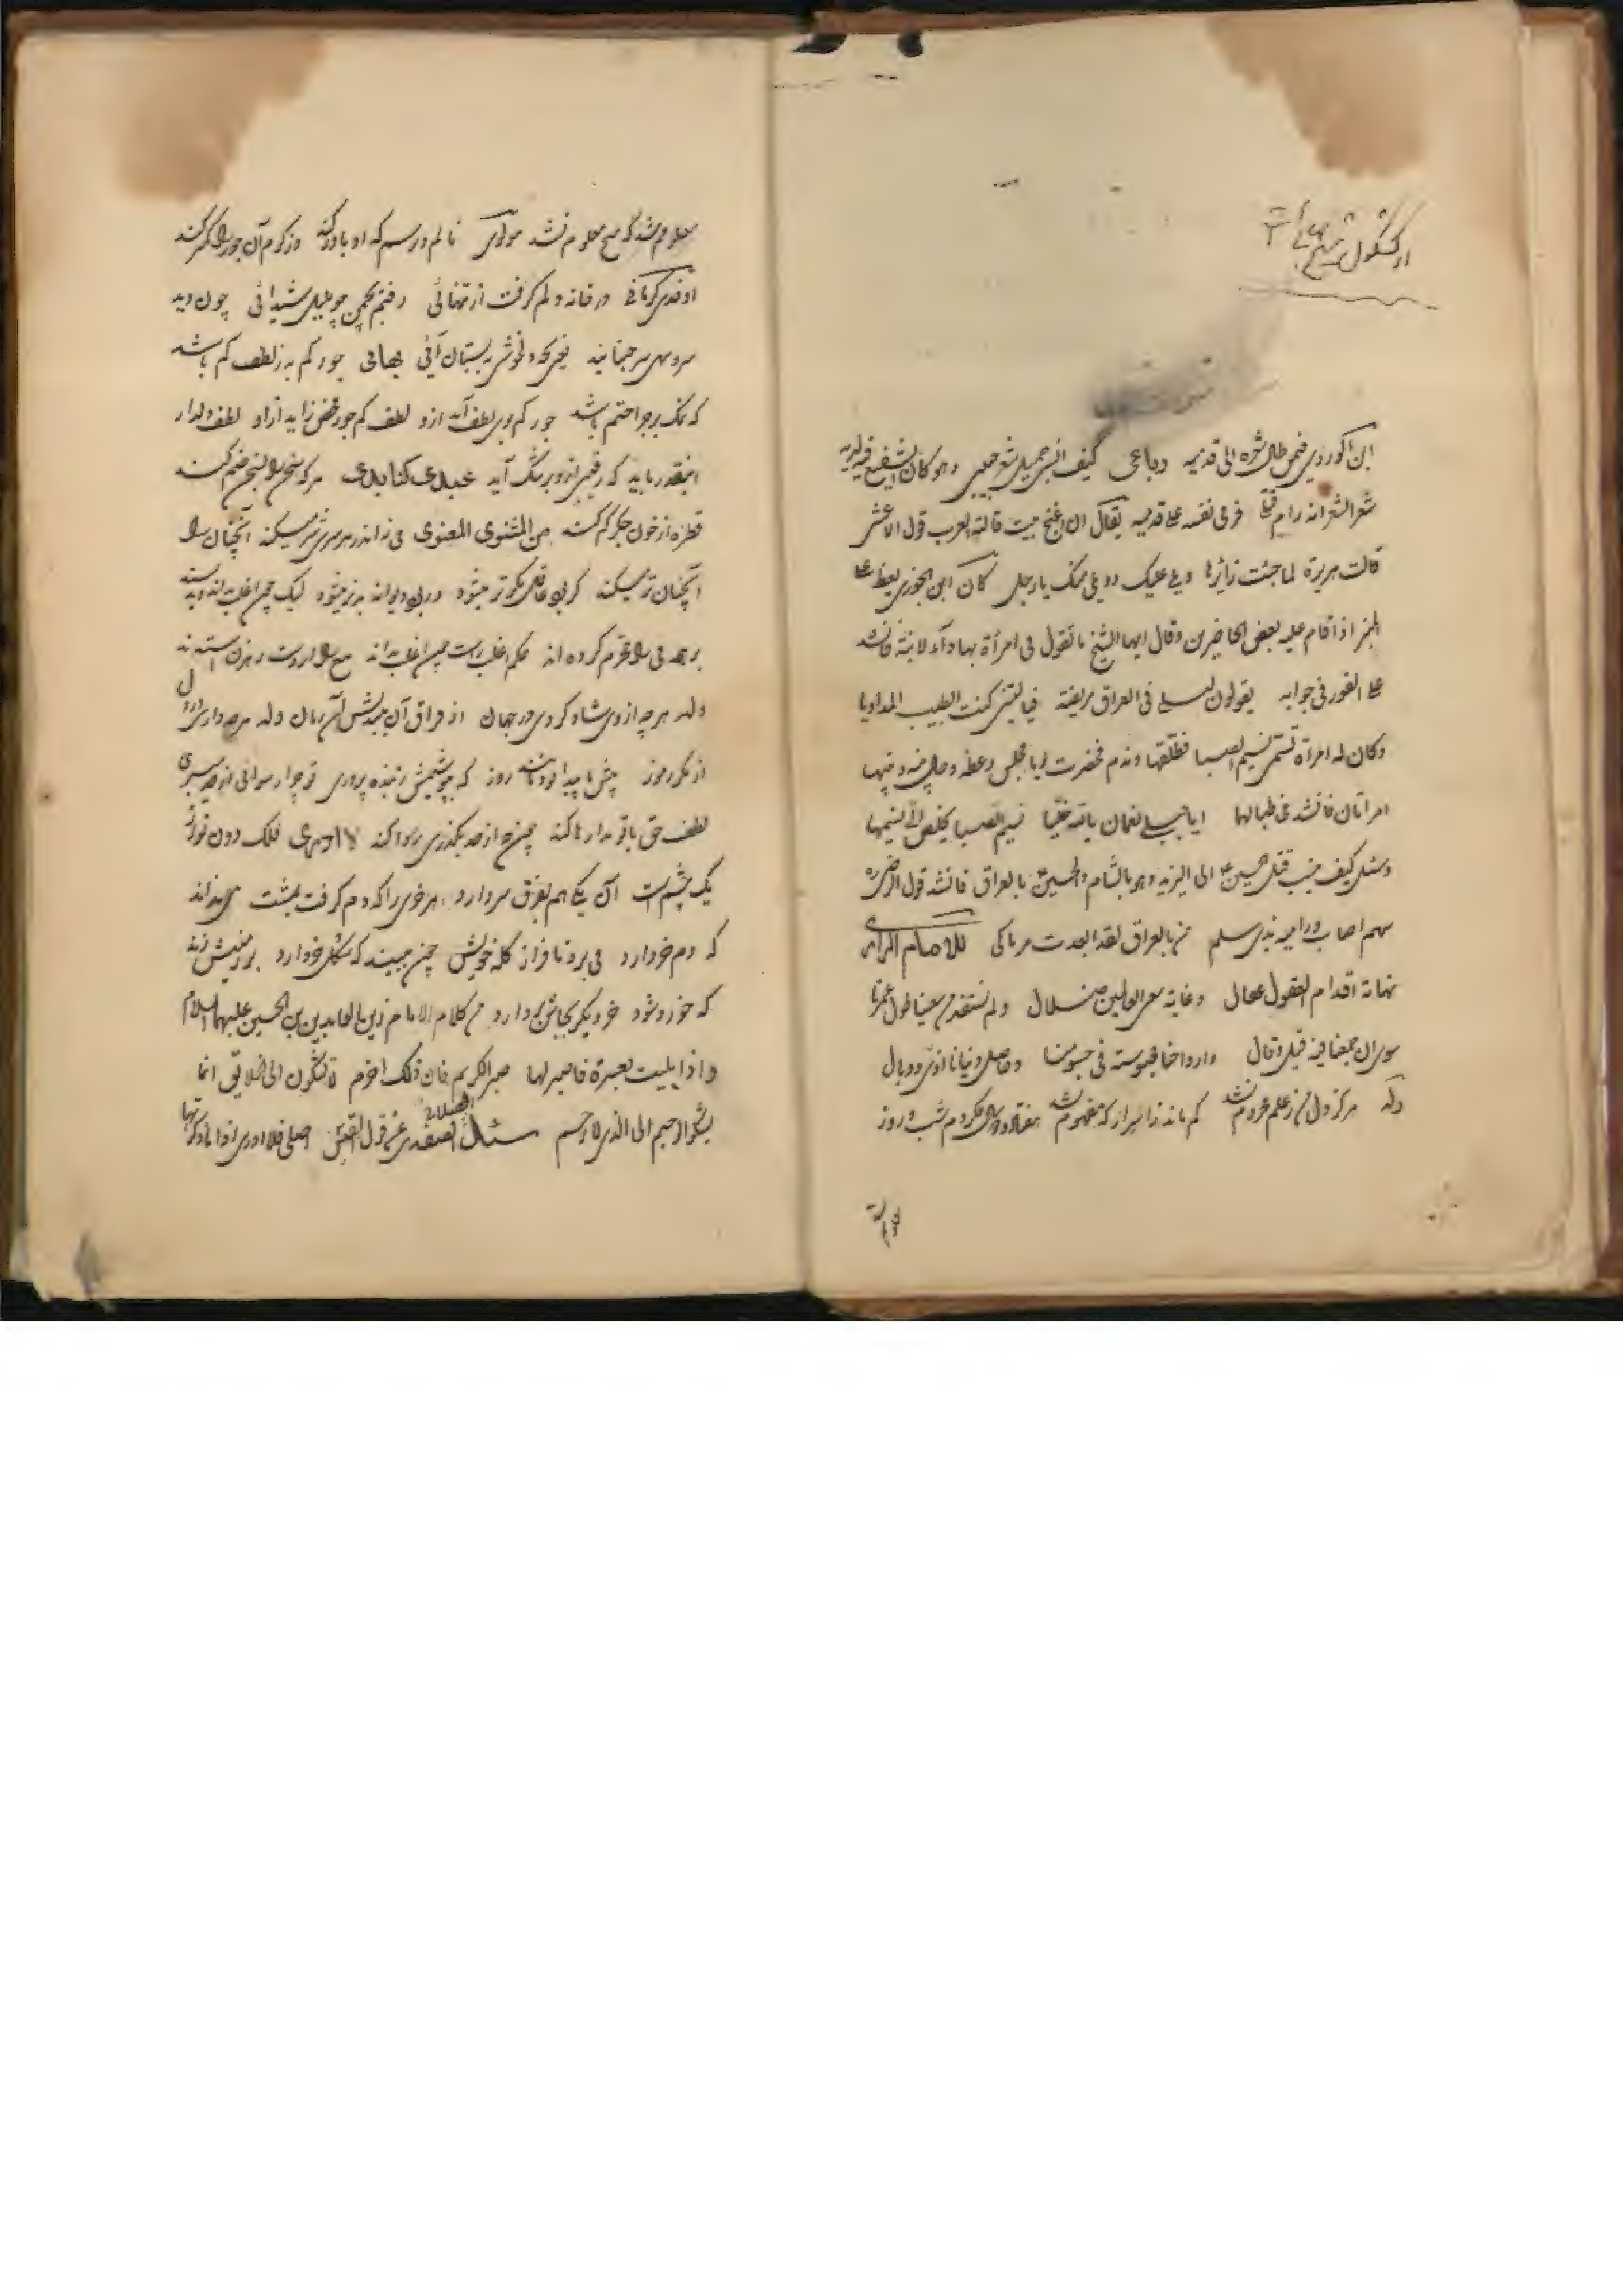 از کشکول شیخ بهائی
ابن الوردی فیمن طال شعره الی قدمیه رباعی کیف انسی جمیل شعر حبیبی وهو کان الشفیع فی لدیه
شعر الشعر انه رام قتلی فرمی نفسه علی قدمیه یقال ان اغنج بیت قالته العرب قول الاعشی
قالت هریرة لما جئت زائرها ویلی علیک وویلی منک یا رجل کان ابن الجوزی یعظ علی
المنبر اذ اقام علیه بعض الحاضرین وقال ایها الشیخ ما تقول فی امرأة بها داء لابنة فانشد
علی الفور فی جوابه یقولون لیلی فی العراق مریضة فیا لیتنی کنت الطبیب المداویا
وکان له امرأة تسمی نسیم الصبا فطلقها وندم فحضرت یوما مجلس وعظه وحال بینه وبینها
امرأتان فانشد مخاطبا لهما ایا جبلی نعمان بالله خلیا نسیم الصبا یخلص الی نسیمها
وسئل کیف ینسب قتل الحسین ع الی الیزید وهو بالشام والحسین ع بالعراق فانشد قول الرضی ره
سهم اصاب ورامیه بذی سلم من بالعراق لقد ابعدت مرماکی للامام الرازی
نهایة اقدام العقول عقال وغایة سعی العالمین ضلال ولم نستفد من سعینا طول عمرنا
سوی ان جمعنا فیه قیل وقال وارواحنا محبوسة فی جسومنا وحاصل دنیانا اذی ووبال
وله هرگز دل من ز علم محروم نشد کم ماند ز اسرار که مفهوم نشد هفتاد و دو سال فکر کردم شب و روز
معلومم شد که هیچ معلوم نشد مولوی نالم و ترسم که او باور کند وز کرم آن جور را کمتر کند
اوحدی کرمانی در خانه دلم گرفت از تنهائی رفتم بچمن چو بلبل شیدائی چون دید
سرو سهی سر جنبانید یعنی بچه دلخوشی به بستان آئی بهائی جور کم به ز لطف کم باشد
که نمک بر جراحتم باشد جور کم بوی لطف آید ازو لطف کم جور محض زاید ازو لطف دلدار
اینقدر باید که رقیبی ازو برشک آید عبدی کنابدی هر که سخن را بسخن ضم کند
قطره از خون جگر کم کند من المثنوی المعنوی می نه اندر هر سری شر میکند آنچنان را
آنچنان‌تر میکند گر بود عاقل نکوتر میشود ور بود دیوانه بدتر میشود لیک چون اغلب بدند و بد پسند
بر همه می را محرم کرده‌اند حکم اغلب راست چون اغلب بدند تیغ را از دست رهزن استدند
وله هر چه از وی شاد کردی در جهان از فراق آن بیندیش آن زمان وله هر چه داری در دل
از مکر و رموز پیش ما پیدا بود مانند روز گر بپوشیمش ز بنده پروری تو چرا رسوائی از حد میبری
لطف حق با تو مداراها کند چونکه از حد بگذری رسوا کند لا ادری فلک دون نواز
یک چشم است آن یکی هم بفرق سر دارد هر خری را که دم گرفت بمشت می نداند
که دم خر دارد می برد تا فراز کله خویش چون ببیند که شکل خر دارد بر زمینش زند
که خرد شود خر دیگر بجاش بر دارد من کلام الامام زین العابدین بن الحسین علیهما السلام
واذا بلیت بعسرة فاصبر لها صبر الکریم فان ذلک احزم لا تشکون الی الخلائق انما
تشکو الرحیم الی الذی لا یرحم سئل الصلاح الصفدی عن قول القیس اصلی فلا ادری اذا ما ذکرتها